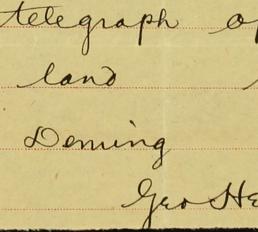 telegraph
land
Deming
Geo